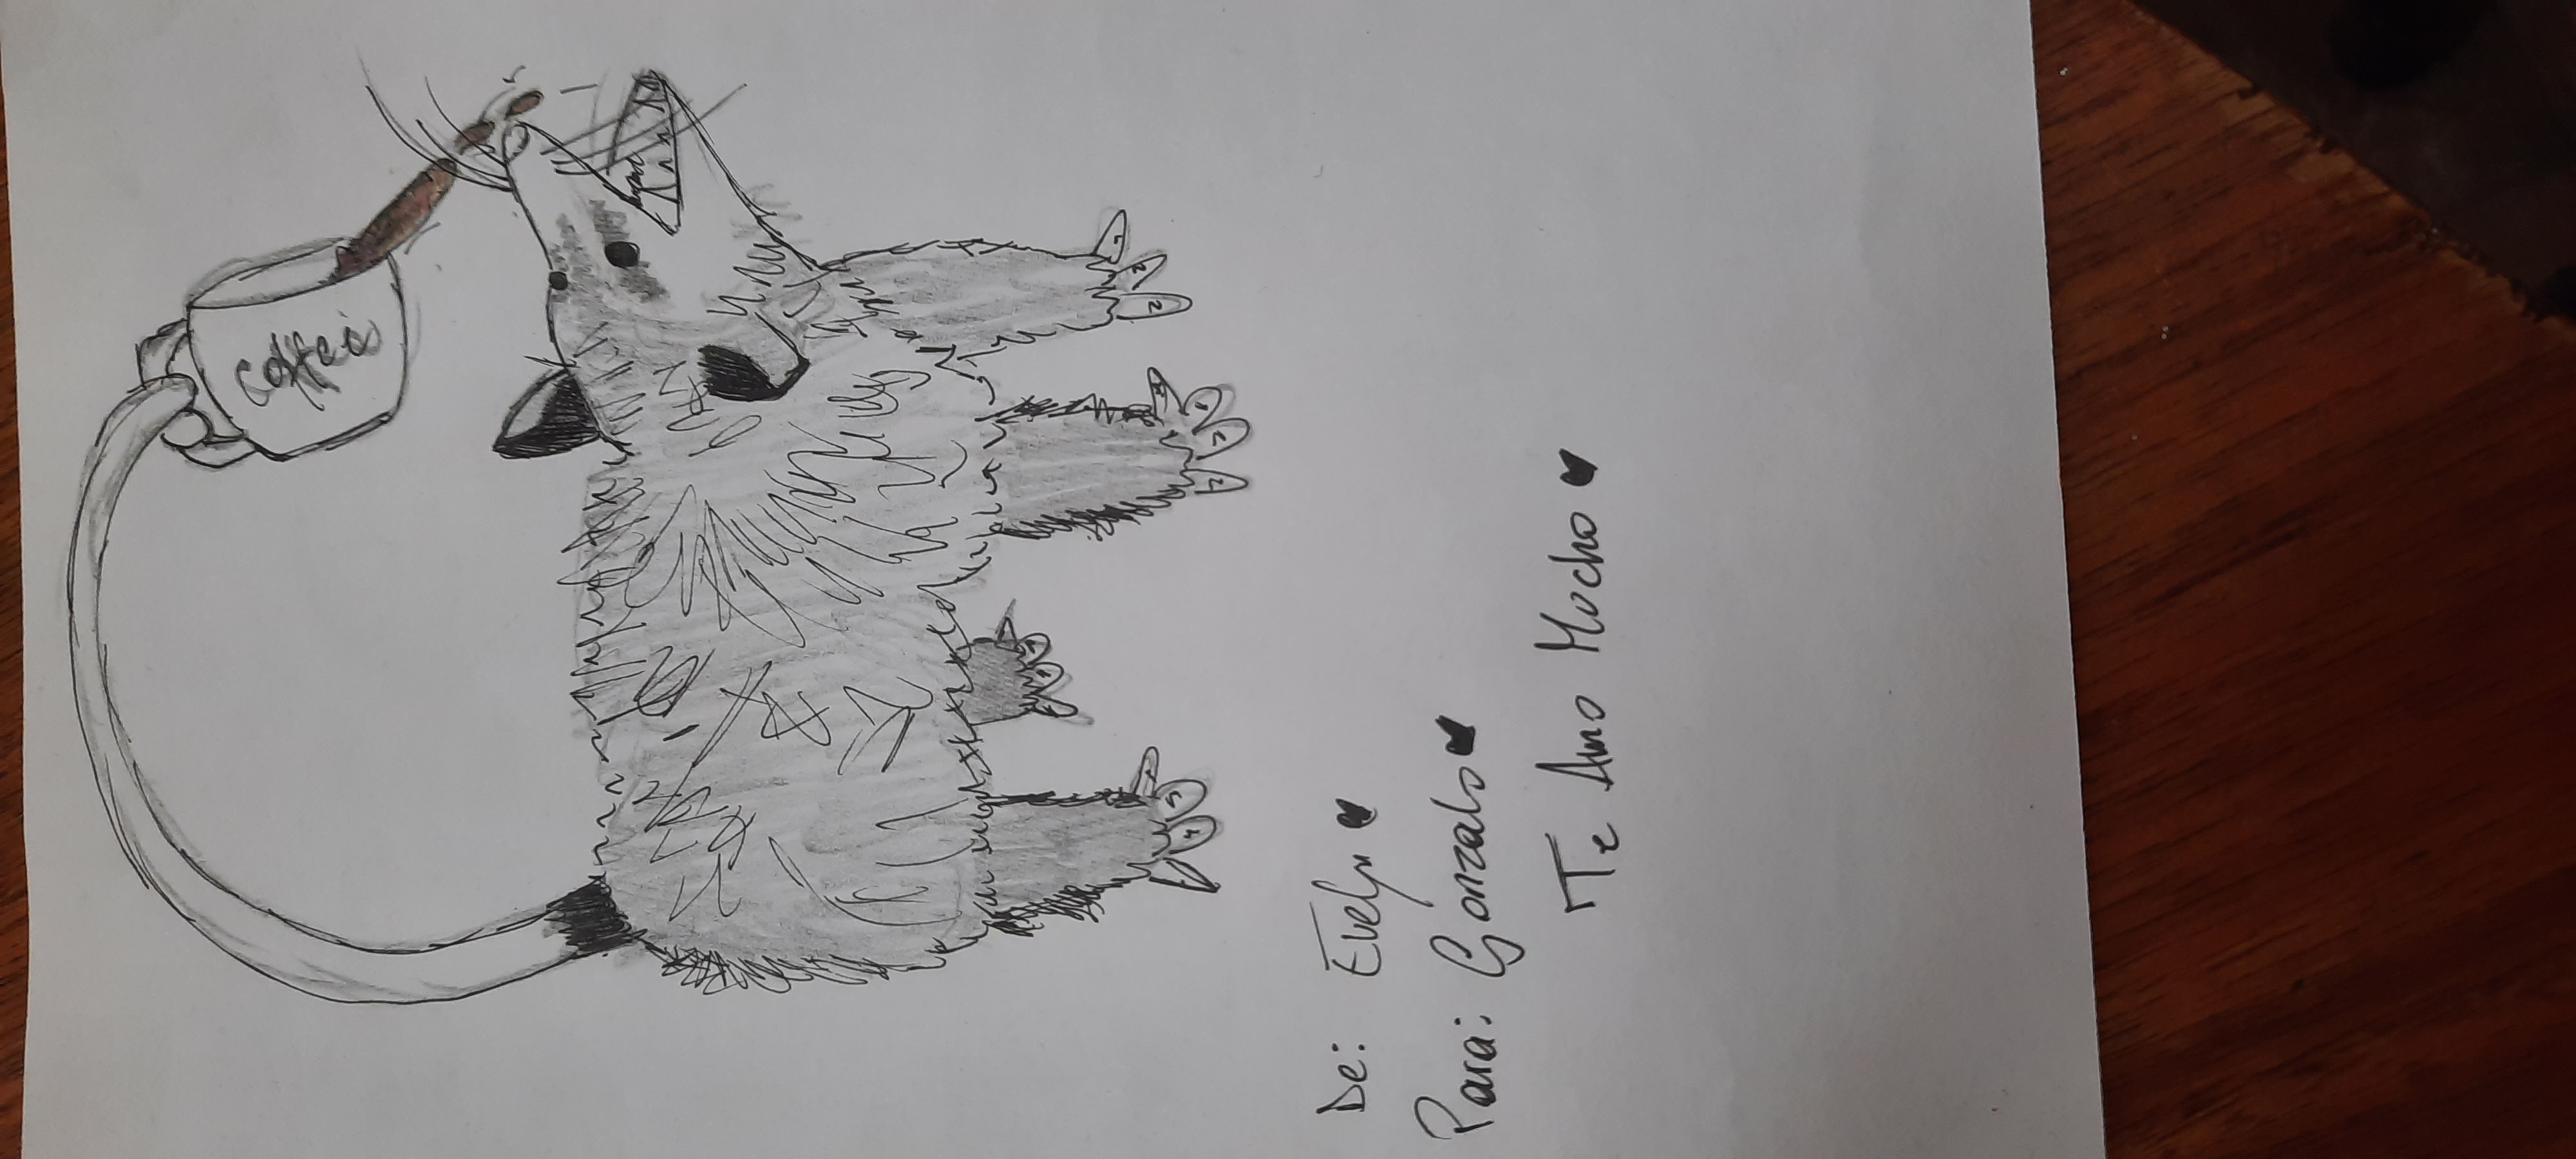 Coffee
De: Evelyn ♥
Para: Gonzalo ♥
Te Amo Mucho ♥